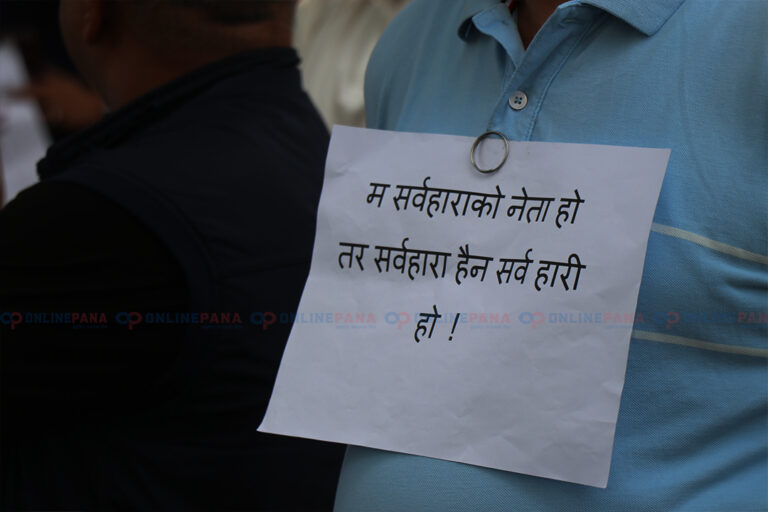 म सर्वहाराको नेता हो
तर सर्वहारा हैन सर्व हारी
हो !
ONLINEPANA ONLINEPANA ONLINEPANA ONLINEPANA ONLINEPANA ONLINEPANA